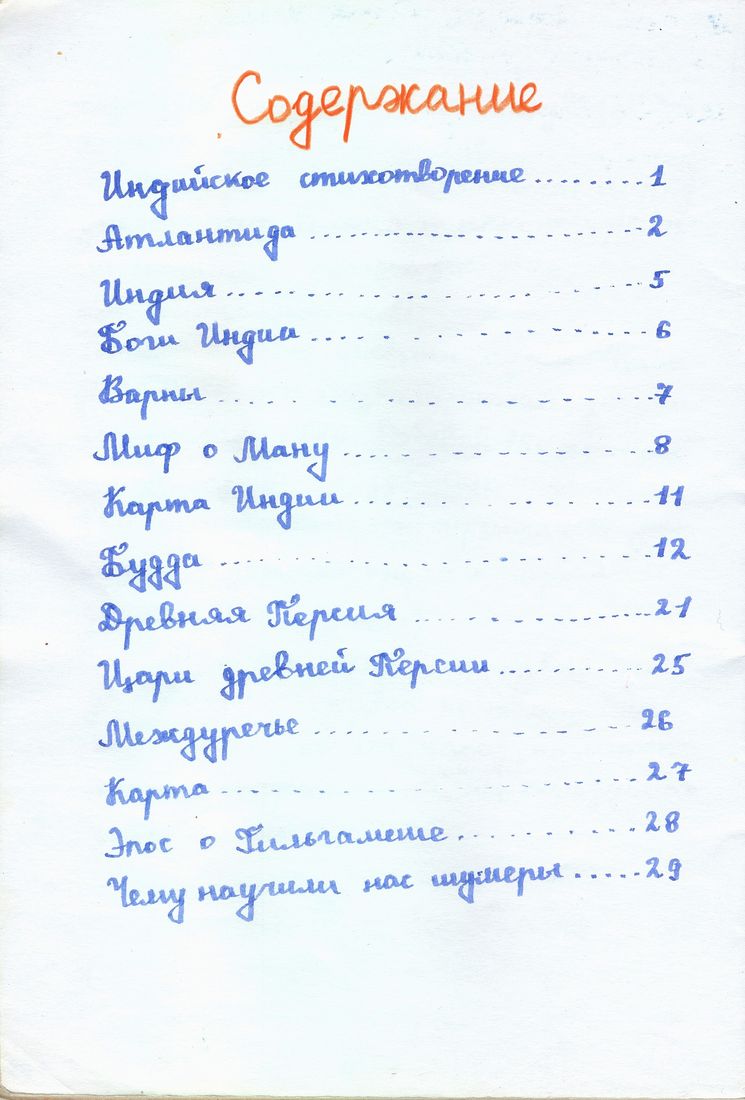 Содержание
Индийское стихотворение........1
Атлантида ..............................2
Индия..............................5
Боги Индии..............................6
Варны..............................7
Миф о Ману..............................8
Карта Индии..............................11
Будда ..............................12
Древняя Персия ..............................21
Цари древней Персии..............................25
Междуречье ..............................26
Карта ..............................27
Эпос о Гильгамеше..............................28
Чему научили нас шумеры.....29